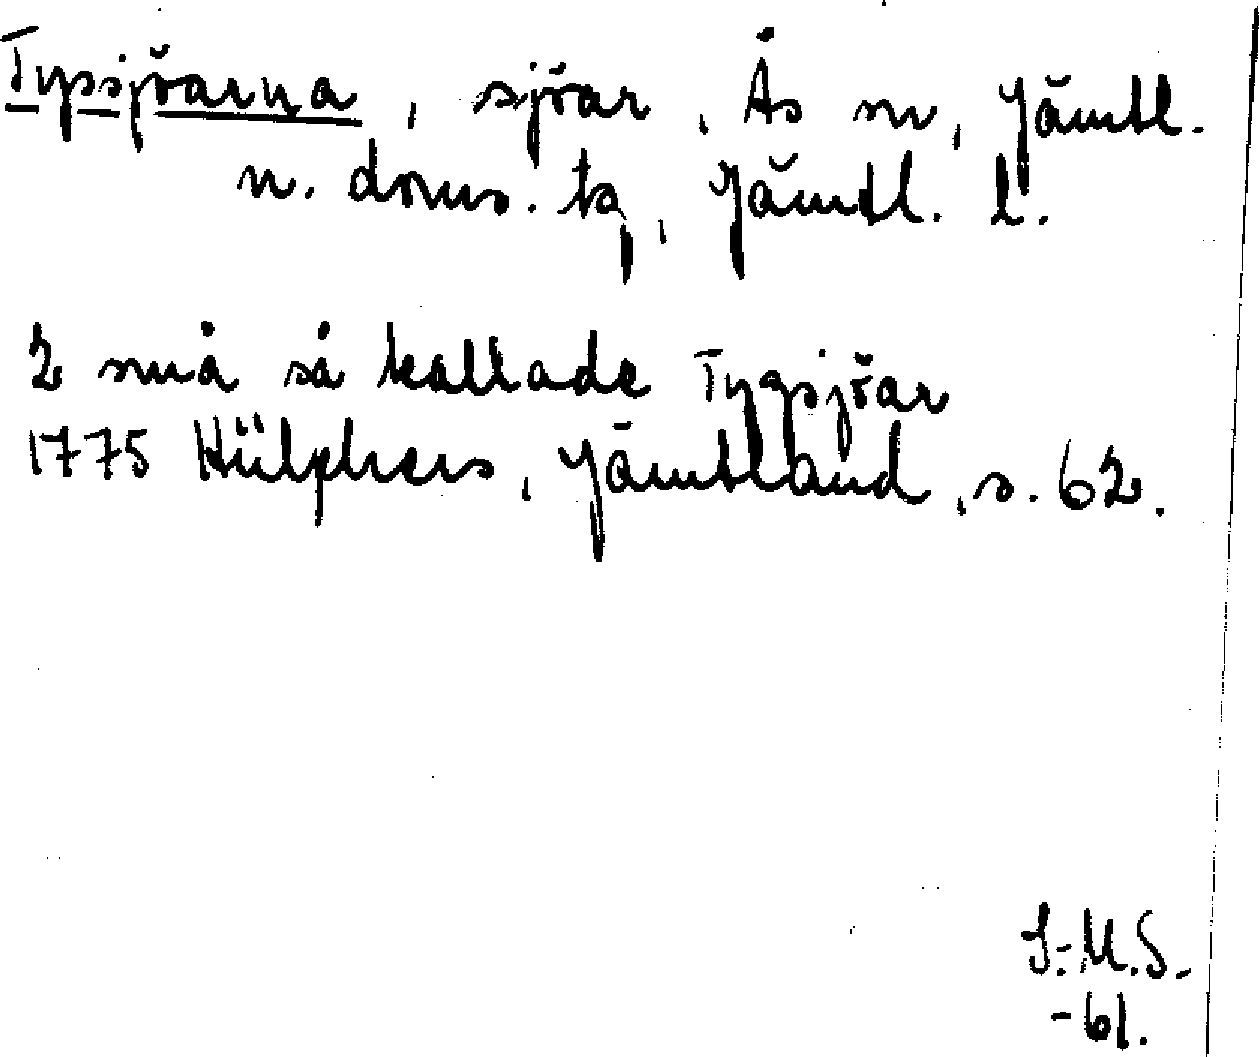 Tyssjöarna, sjöar, Ås sn, Jämtl.
n. doms. tg, Jämtl. l.
2 små så kallade Tygsjöar
1775 Hülphers, Jämtland, s. 62.
J.M.S.
-61.